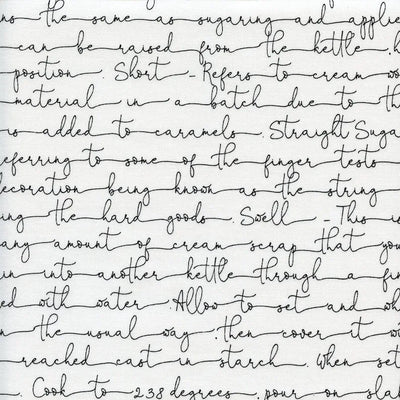 ns the same as sugaring and applie
can be raised from the kettle. h
position. Short - Refers to cream wo
material in a batch due to th
is added to caramels. Straight Suga
eferring to some of the finger tests
decoration being known as the string
ing the hard goods. Swell - This is
any amount of cream scrap that you
in into another kettle through a fin
ed with water. Allow to set and wh
n the usual way, then cover it wi
reached cast in starch. When set
. Cook to 238 degrees, pour on slab